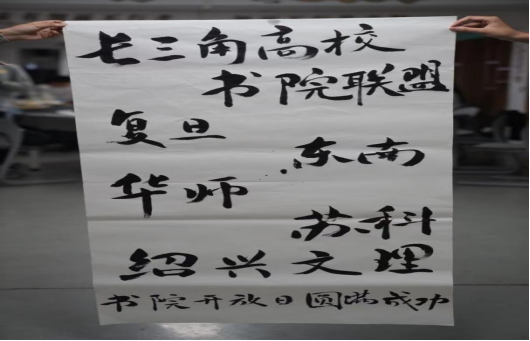 长三角高校
书院联盟
复旦
东南
华师
苏科
绍兴文理
书院开放日圆满成功